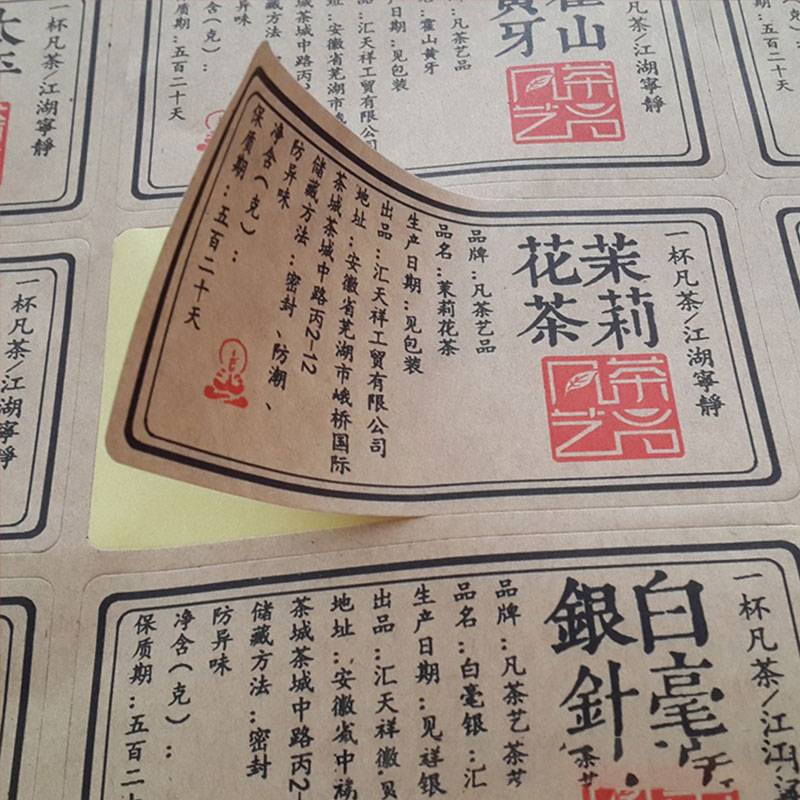 一杯凡茶/江湖寧靜
江湖寧靜
霍山
黄牙
品牌：凡茶艺品
品名：霍山黄牙
生产日期：见包装
出品：汇天祥工贸有限公司
地址：安徽省芜湖市
茶城中路丙
储藏方法：
异味
净含（克）：
保质期：五百二十天
凡茶艺品
一杯凡茶/江湖寧靜
茉莉
花茶
凡茶艺品
品牌：凡茶艺品
品名：茉莉花茶
生产日期：见包装
出品：汇天祥工贸有限公司
地址：安徽省芜湖市峨桥国际
茶城茶城中路丙2-12
储藏方法：密封、防潮、
防异味
净含（克）：
保质期：五百二十天
一杯凡茶/江湖寧靜
一杯凡茶/江
白毫
銀針
品牌：凡茶艺茶
品名：白毫银：汇
生产日期：见祥银
出品：汇天祥徽
地址：安徽省中
茶城茶城中路丙2-
储藏方法：密封
防异味
净含（克）：
保质期：五百二十